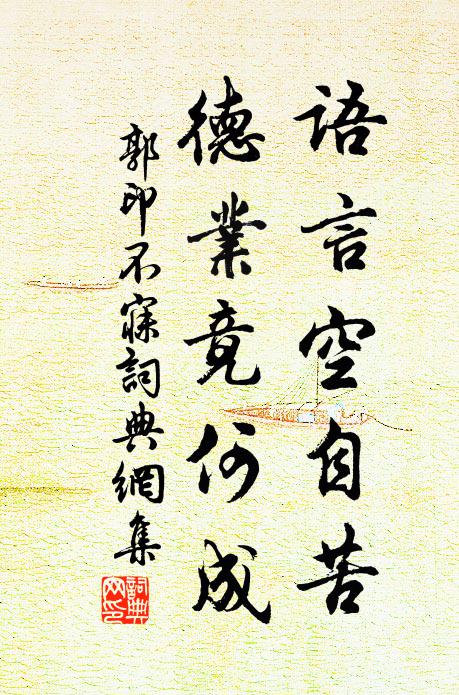 語言空自苦
德業竟何成
郭印不寐詞典網集
詞典
网印